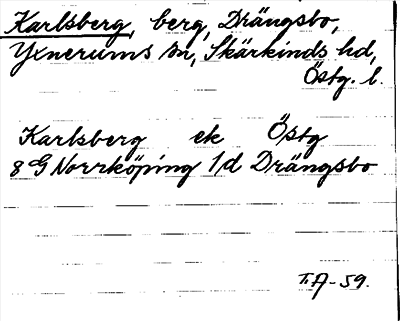 Karlsberg, berg, Drängsbo,
Yxnerums sn, Skärkinds hd,
Östg. l.
Karlsberg ek Östg
8 G Norrköping 1/d Drängsbo
T.A-59.